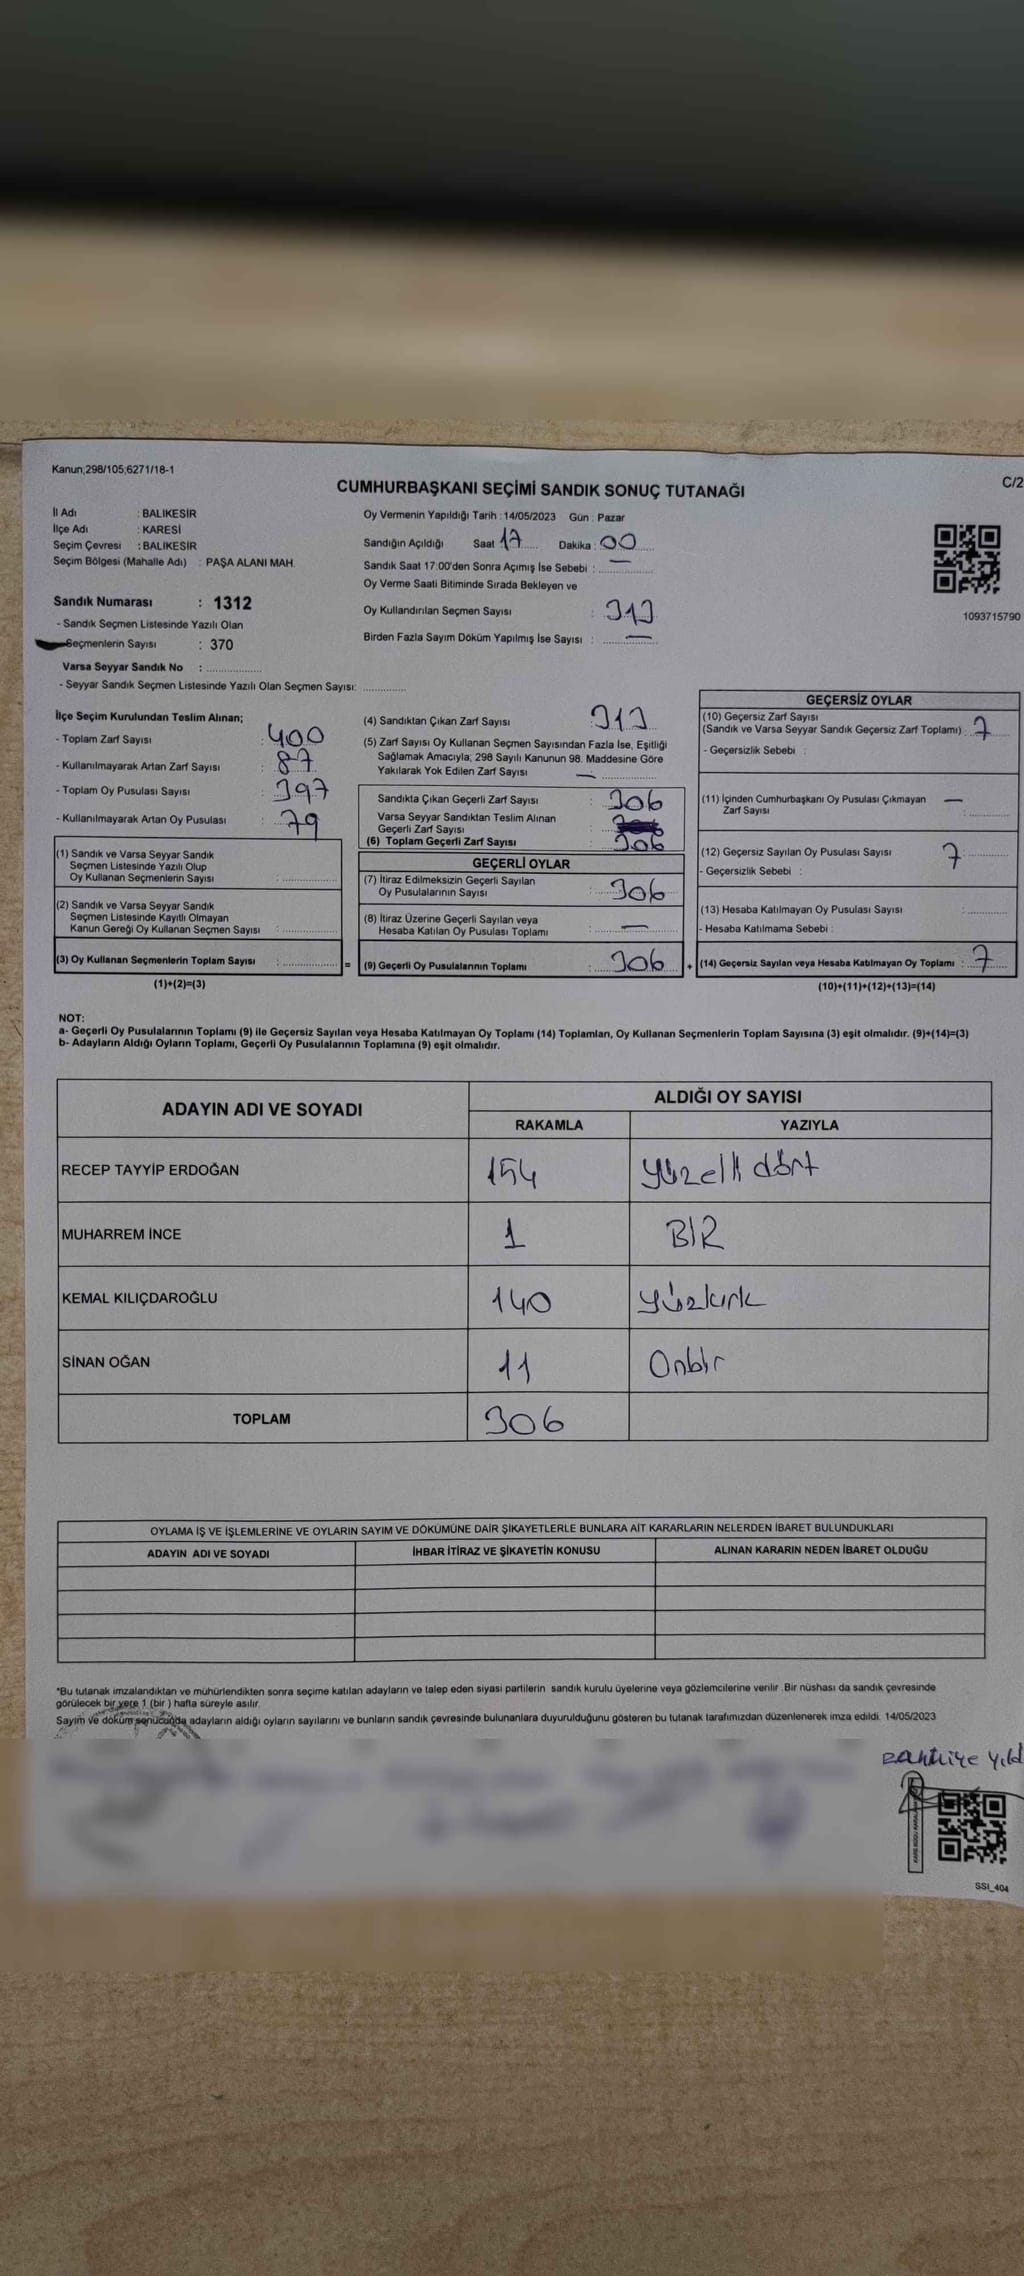 Kanun,298/105,6271/18-1
CUMHURBAŞKANI SEÇİMİ SANDIK SONUÇ TUTANAĞI
C/2
İl Adı : BALIKESİR
İlçe Adı : KARESİ
Seçim Çevresi : BALIKESİR
Seçim Bölgesi (Mahalle Adı) : PAŞA ALANI MAH.
Sandık Numarası : 1312
- Sandık Seçmen Listesinde Yazılı Olan
Seçmenlerin Sayısı : 370
Varsa Seyyar Sandık No : ..................
- Seyyar Sandık Seçmen Listesinde Yazılı Olan Seçmen Sayısı: ..............
Oy Vermenin Yapıldığı Tarih : 14/05/2023 Gün : Pazar
Sandığın Açıldığı Saat 17 Dakika : 00
Sandık Saat 17:00'den Sonra Açımış İse Sebebi : —
Oy Verme Saati Bitiminde Sırada Bekleyen ve
Oy Kullandırılan Seçmen Sayısı : 313
Birden Fazla Sayım Döküm Yapılmış İse Sayısı : —
1093715790
İlçe Seçim Kurulundan Teslim Alınan;
- Toplam Zarf Sayısı : 400
- Kullanılmayarak Artan Zarf Sayısı : 87
- Toplam Oy Pusulası Sayısı : 397
- Kullanılmayarak Artan Oy Pusulası : 79
(1) Sandık ve Varsa Seyyar Sandık
Seçmen Listesinde Yazılı Olup
Oy Kullanan Seçmenlerin Sayısı : ..................
(2) Sandık ve Varsa Seyyar Sandık
Seçmen Listesinde Kayıtlı Olmayan
Kanun Gereği Oy Kullanan Seçmen Sayısı : ..................
(3) Oy Kullanan Seçmenlerin Toplam Sayısı : ..................
(1)+(2)=(3)
(4) Sandıktan Çıkan Zarf Sayısı : 313
(5) Zarf Sayısı Oy Kullanan Seçmen Sayısından Fazla İse, Eşitliği
Sağlamak Amacıyla; 298 Sayılı Kanunun 98. Maddesine Göre
Yakılarak Yok Edilen Zarf Sayısı : —
Sandıkta Çıkan Geçerli Zarf Sayısı : 306
Varsa Seyyar Sandıktan Teslim Alınan
Geçerli Zarf Sayısı :
(6) Toplam Geçerli Zarf Sayısı : 306
GEÇERLİ OYLAR
(7) İtiraz Edilmeksizin Geçerli Sayılan
Oy Pusulalarının Sayısı : 306
(8) İtiraz Üzerine Geçerli Sayılan veya
Hesaba Katılan Oy Pusulası Toplamı : —
= (9) Geçerli Oy Pusulalarının Toplamı : 306
GEÇERSİZ OYLAR
(10) Geçersiz Zarf Sayısı
(Sandık ve Varsa Seyyar Sandık Geçersiz Zarf Toplamı) : 7
- Geçersizlik Sebebi :
(11) İçinden Cumhurbaşkanı Oy Pusulası Çıkmayan
Zarf Sayısı : —
(12) Geçersiz Sayılan Oy Pusulası Sayısı : 7
- Geçersizlik Sebebi :
(13) Hesaba Katılmayan Oy Pusulası Sayısı : ..............
- Hesaba Katılmama Sebebi :
+ (14) Geçersiz Sayılan veya Hesaba Katılmayan Oy Toplamı : 7
(10)+(11)+(12)+(13)=(14)
NOT:
a- Geçerli Oy Pusulalarının Toplamı (9) ile Geçersiz Sayılan veya Hesaba Katılmayan Oy Toplamı (14) Toplamları, Oy Kullanan Seçmenlerin Toplam Sayısına (3) eşit olmalıdır. (9)+(14)=(3)
b- Adayların Aldığı Oyların Toplamı, Geçerli Oy Pusulalarının Toplamına (9) eşit olmalıdır.
ADAYIN ADI VE SOYADI
ALDIĞI OY SAYISI
RAKAMLA YAZIYLA
RECEP TAYYİP ERDOĞAN 154 yüzelli dört
MUHARREM İNCE 1 BİR
KEMAL KILIÇDAROĞLU 140 yüzkırk
SİNAN OĞAN 11 Onbir
TOPLAM 306
OYLAMA İŞ VE İŞLEMLERİNE VE OYLARIN SAYIM VE DÖKÜMÜNE DAİR ŞİKAYETLERLE BUNLARA AİT KARARLARIN NELERDEN İBARET BULUNDUKLARI
ADAYIN ADI VE SOYADI İHBAR İTİRAZ VE ŞİKAYETİN KONUSU ALINAN KARARIN NEDEN İBARET OLDUĞU
"Bu tutanak imzalandıktan ve mühürlendikten sonra seçime katılan adayların ve talep eden siyasi partilerin sandık kurulu üyelerine veya gözlemcilerine verilir. Bir nüshası da sandık çevresinde
görülecek bir yere 1 (bir ) hafta süreyle asılır.
Sayım ve döküm sonucunda adayların aldığı oyların sayılarını ve bunların sandık çevresinde bulunanlara duyurulduğunu gösteren bu tutanak tarafımızdan düzenlenerek imza edildi. 14/05/2023
SSI_404